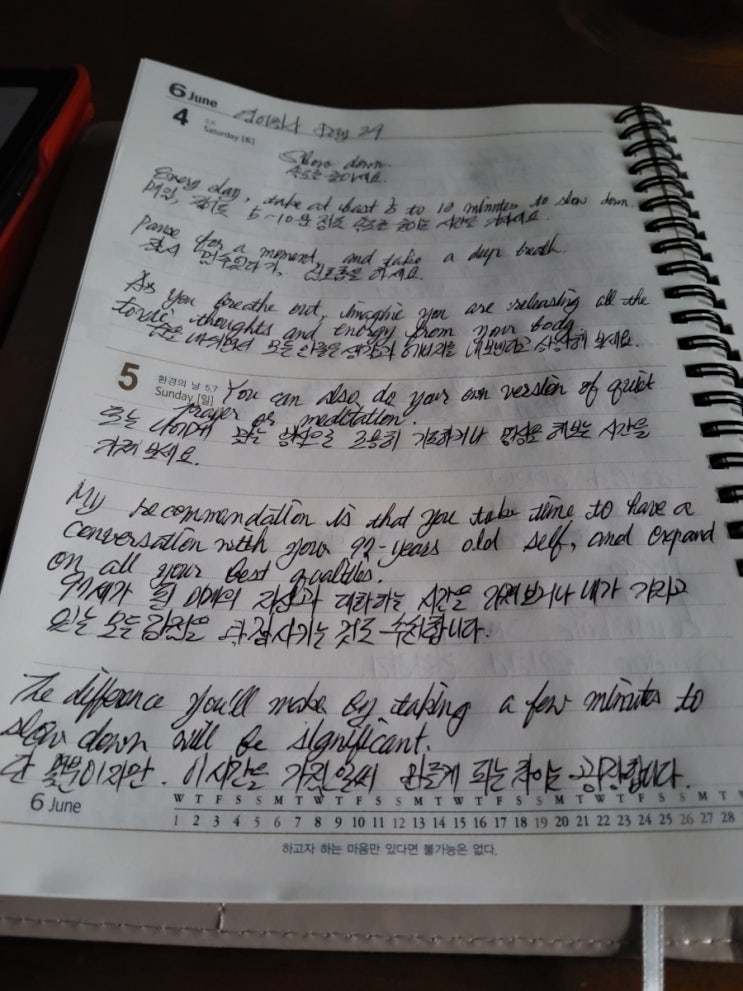 6 June
4
Saturday [토]
Day 29
Slow down.
속도를 줄이세요.
Every day, take at least 5 to 10 minutes to slow down.
매일, 적어도 5~10분 정도 속도를 줄이는 시간을 가지세요.
Pause for a moment, and take a deep breath.
잠시 멈추었다가, 심호흡을 하세요.
As you breathe out, imagine you are releasing all the
toxic thoughts and energy from your body.
숨을 내쉬면서 모든 안좋은 생각과 에너지를 내보낸다고 상상해 보세요.
5
환경의 날 5.7
Sunday [일]
You can also do your own version of quiet
prayer or meditation.
또는 나에게 맞는 방식으로 조용히 기도하거나 명상을 해보는 시간을
가져 보세요.
My recommendation is that you take time to have a
conversation with your 92-years old self, and expand
on all your best qualities.
세가 된 미래의 자신과 대화하는 시간을 가져보거나 내가 가지고
있는 모든 강점을 확장시키는 것도 추천합니다.
The difference you'll make by taking a few minutes to
slow down will be significant.
단 몇분이지만. 이 시간을 가짐으로써 다르게 되는 차이는 굉장합니다.
6 June
W T F S S M T W T F S S M T W T F S S M T W T F S S M T
1 2 3 4 5 6 7 8 9 10 11 12 13 14 15 16 17 18 19 20 21 22 23 24 25 26 27 28
하고자 하는 마음만 있다면 불가능은 없다.